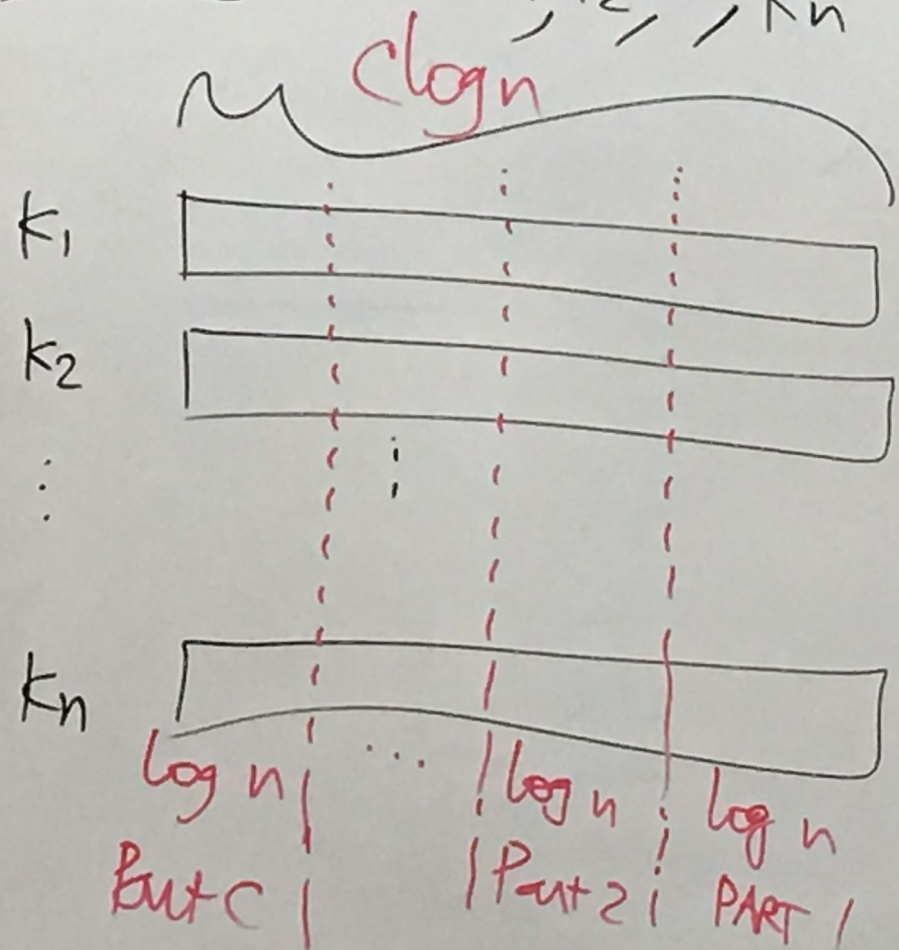 , , , Kn
Clogn
K1
K2
⋮
Kn
log n ... log n log n
Part C Part 2 PART 1